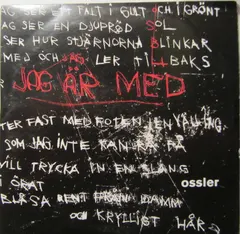 AG SER ETT FALT I GULT OCH I GRÖNT
AG SER EN DJUPRÖD SOL
SER HUR STJÄRNORNA BLINKAR
MED OCH JAG LER TILLBAKS
JAG ÄR MED
TER FAST MED FOTEN I EN
SOM JAG INTE KAN RÅ PÅ
VILL TRYCKA IN EN SLANG
I ÖRAT
ossler
BLÅSA RENT FRÅN DAMM
OCH KRYLLIGT HÅR